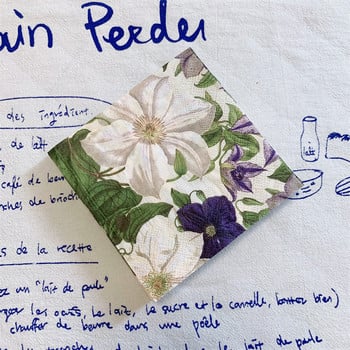 ain Perdu
des ingrédient
de lait
café de
ches de brioche
lait
s de la recette
ez un "lait de poule"
les oeufs, le lait, le sucre et la cannelle, battez bien)
chauffer de beurre dans une poêle
lait de poule